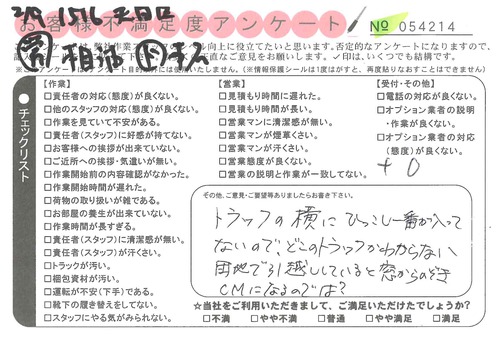 お客様不満足度アンケート
№ 054214
チェックリスト
【作業】
□責任者の対応(態度)が良くない。
□他のスタッフの対応(態度)が良くない。
□作業を見ていて不安がある。
□責任者(スタッフ)に好感が持てない。
□お客様への挨拶が出来ていない。
□ご近所への挨拶・気遣いが無い。
□作業開始前の内容確認がなかった。
□作業開始時間が遅れた。
□荷物の取り扱いが雑である。
□お部屋の養生が出来ていない。
□作業時間が長すぎる。
□責任者(スタッフ)に清潔感が無い。
□責任者(スタッフ)が汗くさい。
□トラックが汚い。
□梱包資材が汚い。
□運転が不安(下手)である。
□靴下の履き替えをしてない。
□スタッフにやる気がみられない。
【営業】
□見積もり時間に遅れた。
□見積もり時間が長い。
□営業マンに清潔感が無い。
□営業マンが煙草くさい。
□営業マンが汗くさい。
□営業態度が良くない。
□営業の説明と作業が一致してない。
【受付・その他】
□電話の対応が良くない。
□オプション業者の説明
・作業が良くない。
□オプション業者の対応
(態度)が良くない。
+0
その他、ご意見・ご要望等ありましたらお書き下さい。
トラックの横にひっこし一番が入って
ないので、どこのトラックかわからない
団地で引越ししていると窓からのぞき
CMになるのでは?
☆当社をご利用いただきまして、ご満足いただけたでしょうか?
□不満 □やや不満 □普通 □やや満足 □満足